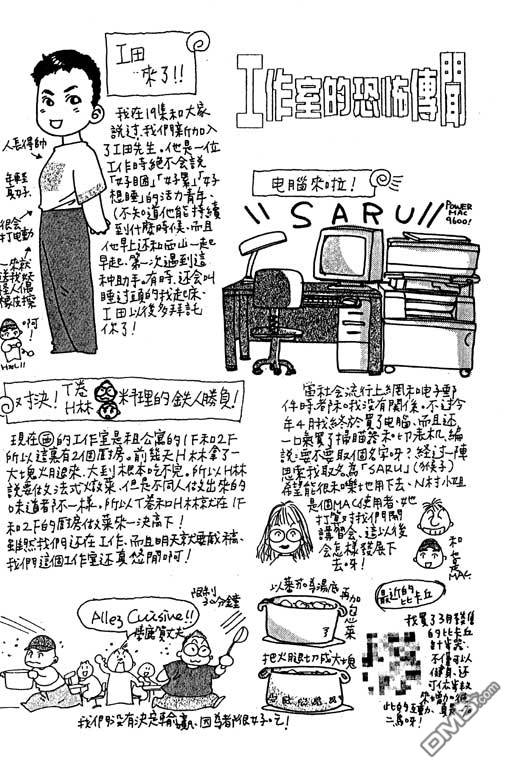 工作室的恐怖傳聞
工田
來了!!
我在19集和大家
說過,我們新加入
了工田先生。他是一位
工作時絕不會說
「好睏」「好累」「好
想睡」的活力青年。
(不知道他能持續
到什麼時候。而且
他早上還和西山一起
早起。第一次遇到這
種助手。有時,還會叫
睡過頭的我起床。
工田以後多拜託
你了!
人長得帥
年輕
真好
很會
打電動
啊!
电腦來啦!
"SARU"
POWER
MAC
9600!
當社会流行上網和电子郵
件時都和我沒有関係。不过今
年4月我終於買了电腦。而且还
一口氣買了掃瞄器和印表机,編
說:要不要取個名字呀?経过一陣
思索我取名為「SARU」(猴子)
希望能很和樂地用下去。N村小姐
是個MAC使用者,她
打算对我們開
講習会。這以後
会怎樣發展下
去呀!
和
也是
MAC
对決!T卷
H林
料理的鉄人勝負!
現在的工作室是租公寓的1F和2F
所以這裏有2個厨房。前幾天H林拿了一
大塊火腿來。大到根本吃不完。所以H林
說要做法式火菜。但是不同人做出來的
味道都不一樣。所以T卷和H林就在1F
和2F的厨房做菜來一決高下!
雖然我們还在工作。而且明天就要截稿。
我們這個工作室还真悠閒啊!
限制
30分鐘
Allez Cuisine!!
我們沒有決定勝負,因為都很好吃!
以蕃茄為湯底
再加
泡菜
把火腿切成大塊
最近的
比卡丘
我買了3月發售
的比卡丘
計步器。
不僅可以
健身,还
可以
此的互動,真是一石
二鳥呀!
DM5.COM